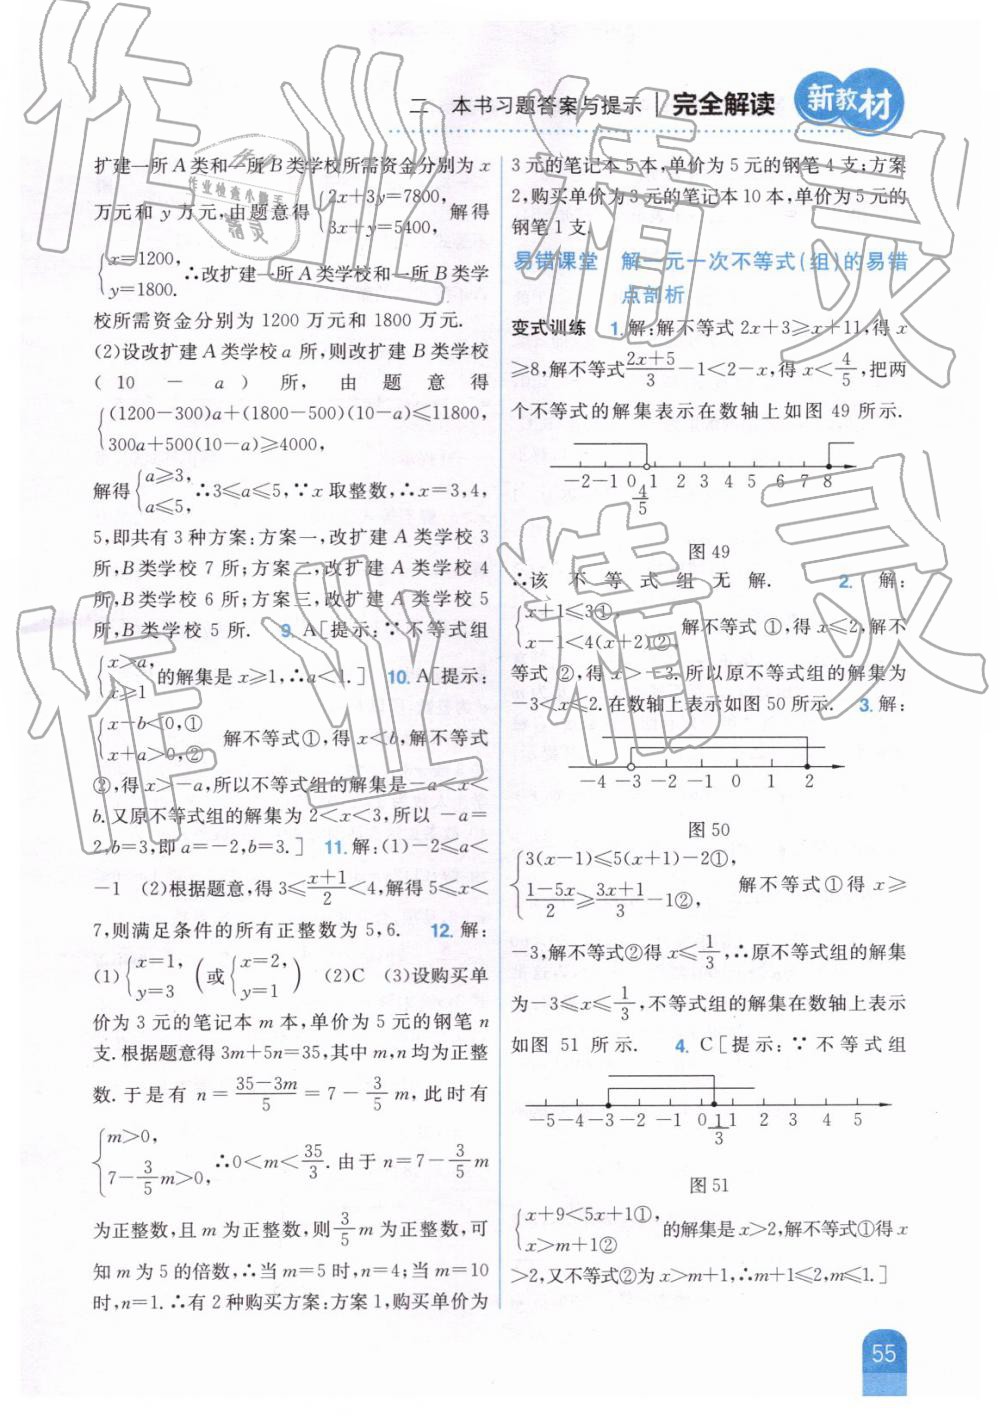 二 本书习题答案与提示 | 完全解读 新教材
扩建一所A类和一所B类学校所需资金分别为x
万元和y万元,由题意得{2x+3y=7800, 3x+y=5400, 解得
{x=1200, y=1800. ∴改扩建一所A类学校和一所B类学
校所需资金分别为1200万元和1800万元.
(2)设改扩建A类学校a所,则改扩建B类学校
(10-a)所,由题意得
{(1200-300)a+(1800-500)(10-a)≤11800,
300a+500(10-a)≥4000,
解得{a≥3, a≤5, ∴3≤a≤5,∵x取整数,∴x=3,4,
5,即共有3种方案:方案一,改扩建A类学校3
所,B类学校7所;方案二,改扩建A类学校4
所,B类学校6所;方案三,改扩建A类学校5
所,B类学校5所. 9. A[提示:∵不等式组
{x>a, x≥1 的解集是x≥1,∴a<1.] 10. A[提示:
{x-b<0,① x+a>0,② 解不等式①,得x<b,解不等式
②,得x>-a,所以不等式组的解集是-a<x<
b.又原不等式组的解集为2<x<3,所以-a=
2,b=3,即a=-2,b=3.] 11. 解:(1)-2≤a<
-1 (2)根据题意,得3≤(x+1)/2<4,解得5≤x<
7,则满足条件的所有正整数为5,6. 12. 解:
(1){x=1, y=3 (或{x=2, y=1) (2)C (3)设购买单
价为3元的笔记本m本,单价为5元的钢笔n
支.根据题意得3m+5n=35,其中m,n均为正整
数.于是有n=(35-3m)/5=7-3/5 m,此时有
{m>0, 7-3/5 m>0, ∴0<m<35/3.由于n=7-3/5 m
为正整数,且m为正整数,则3/5 m为正整数,可
知m为5的倍数,∴当m=5时,n=4;当m=10
时,n=1.∴有2种购买方案:方案1,购买单价为
3元的笔记本5本,单价为5元的钢笔4支;方案
2,购买单价为3元的笔记本10本,单价为5元的
钢笔1支.
易错课堂 解一元一次不等式(组)的易错
点剖析
变式训练 1. 解:解不等式2x+3≥x+11,得x
≥8,解不等式(2x+5)/3-1<2-x,得x<4/5,把两
个不等式的解集表示在数轴上如图49所示.
-2 -1 0 4/5 1 2 3 4 5 6 7 8
图49
∴该不等式组无解. 2. 解:
{x+1≤3①, x-1<4(x+2)②, 解不等式①,得x≤2,解不
等式②,得x>-3.所以原不等式组的解集为
-3<x≤2.在数轴上表示如图50所示. 3. 解:
-4 -3 -2 -1 0 1 2
图50
{3(x-1)≤5(x+1)-2①, (1-5x)/2≥(3x+1)/3-1②, 解不等式①得x≥
-3,解不等式②得x≤1/3,∴原不等式组的解集
为-3≤x≤1/3,不等式组的解集在数轴上表示
如图51所示. 4. C[提示:∵不等式组
-5 -4 -3 -2 -1 0 1/3 1 2 3 4 5
图51
{x+9<5x+1①, x>m+1② 的解集是x>2,解不等式①得x
>2,又不等式②为x>m+1,∴m+1≤2,m≤1.]
55
作业精灵
作业精灵
作业检查小帮手
精灵